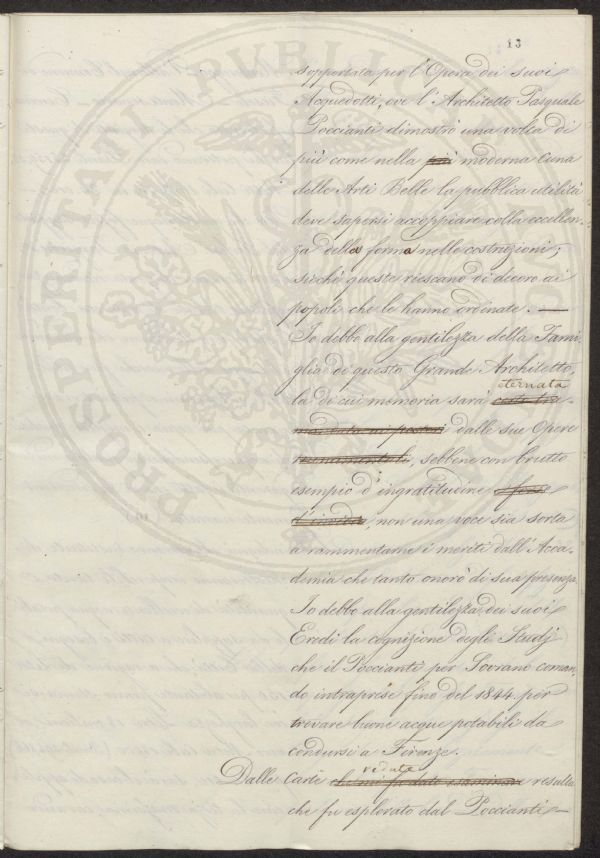 13
sopportata per l'Opera dei suoi
Acquedotti, ove l'Architetto Pasquale
Poccianti dimostrò una volta di
più come nella più moderna Cuna
delle Arti Belle la pubblica utilità
deve sapersi accoppiare colla eccellen-
za della forma nelle costruzioni;
sicchè queste riescano di decoro ai
popoli che le hanno ordinate. —
Io debbo alla gentilezza della Fami-
glia di questo Grande Architetto,
eternata
la di cui memoria sarà
dalle sue Opere
monumentali, sebbene con brutto
esempio d'ingratitudine forse
d'invidia, non una voce sia sorta
a rammentarne i meriti dall'Acca-
demia che tanto onorò di sua presenza.
Io debbo alla gentilezza dei suoi
Eredi la cognizione degli Studj
che il Poccianti per Sovrano coman-
do intraprese fino del 1844. per
trovare buone acque potabili da
condursi a Firenze.
vedute
Dalle Carte che mi fu dato esaminare resulta
che fu esplorato dal Poccianti —
PROSPERITATI PUBLICAE